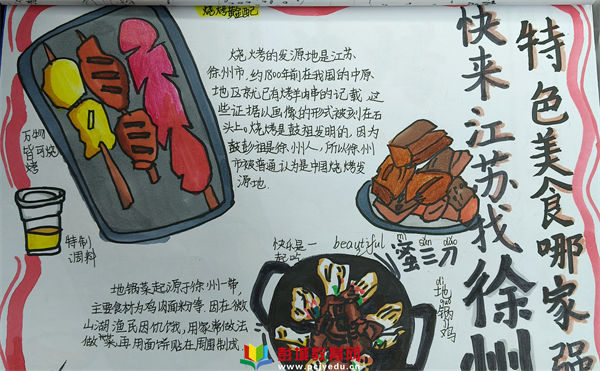 特色美食哪家强
快来江苏找徐州
烧烤的发源地是江苏
徐州市,约1800年前在我国的中原
地区就已有烤羊肉串的记载,这
些证据以画像的形式被刻在石
头上。烧烤是彭祖发明的,因为
彭祖是徐州人,所以徐州
市被普遍认为是中国烧烤发
源地.
万物
皆可烧
烤
特制
调料
快乐是一
起吃
beautiful
mì sān dāo
蜜三刀
dì guō jī
地锅鸡
地锅菜起源于徐州一带,
主要食材为鸡肉面粉等.因在微
山湖渔民因饥饿,用家常做法
做菜,再用面饼贴在周围制成.
彭城教育网
www.pcjyedu.cn